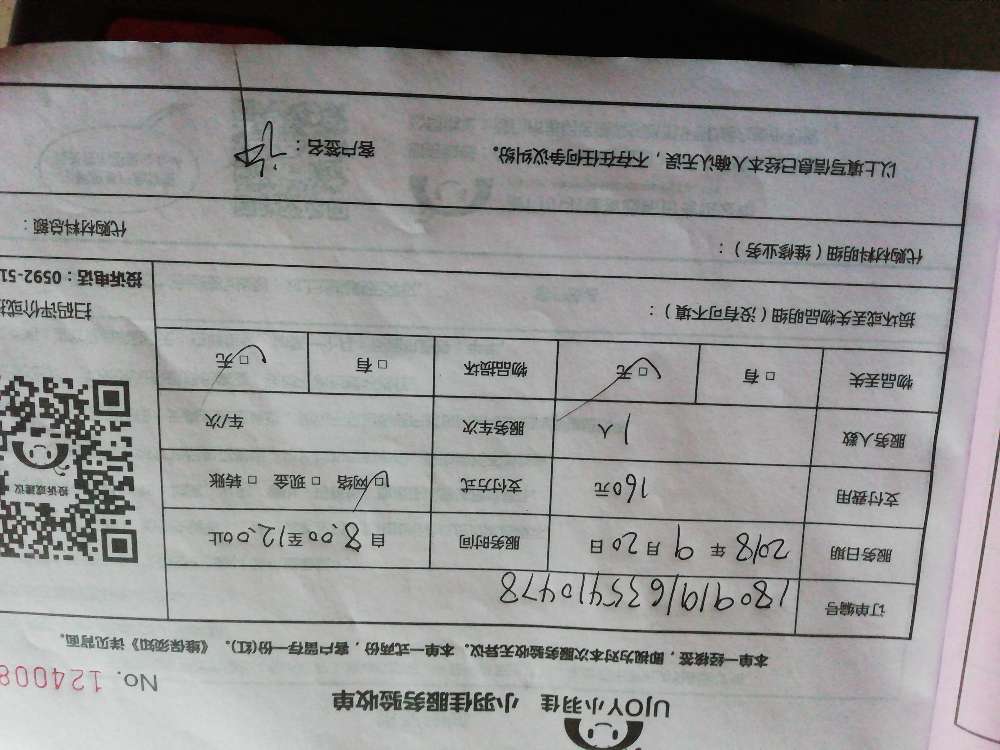 UJOY小羽佳 小羽佳服务验收单
No. 124008
本单一经核签，即视为对本次服务验收无异议。本单一式两份，客户留存一份(红)。《维保须知》详见背面。
订单编号 18091916355410478
服务日期 2018年9月20日 服务时间 自8:00至12:00止
支付费用 160元 支付方式 □网络 □现金 □转账
服务人数 1人 服务车次 车/次
物品丢失 □有 □无 物品损坏 □有 □无
投诉或建议
扫码评价或投
投诉电话：0592-51
损坏或丢失物品明细（没有可不填）：
代购材料明细（维修业务）： 代购材料总额：
以上填写信息已经本人确认无误，不存在任何争议纠纷。 客户签名：